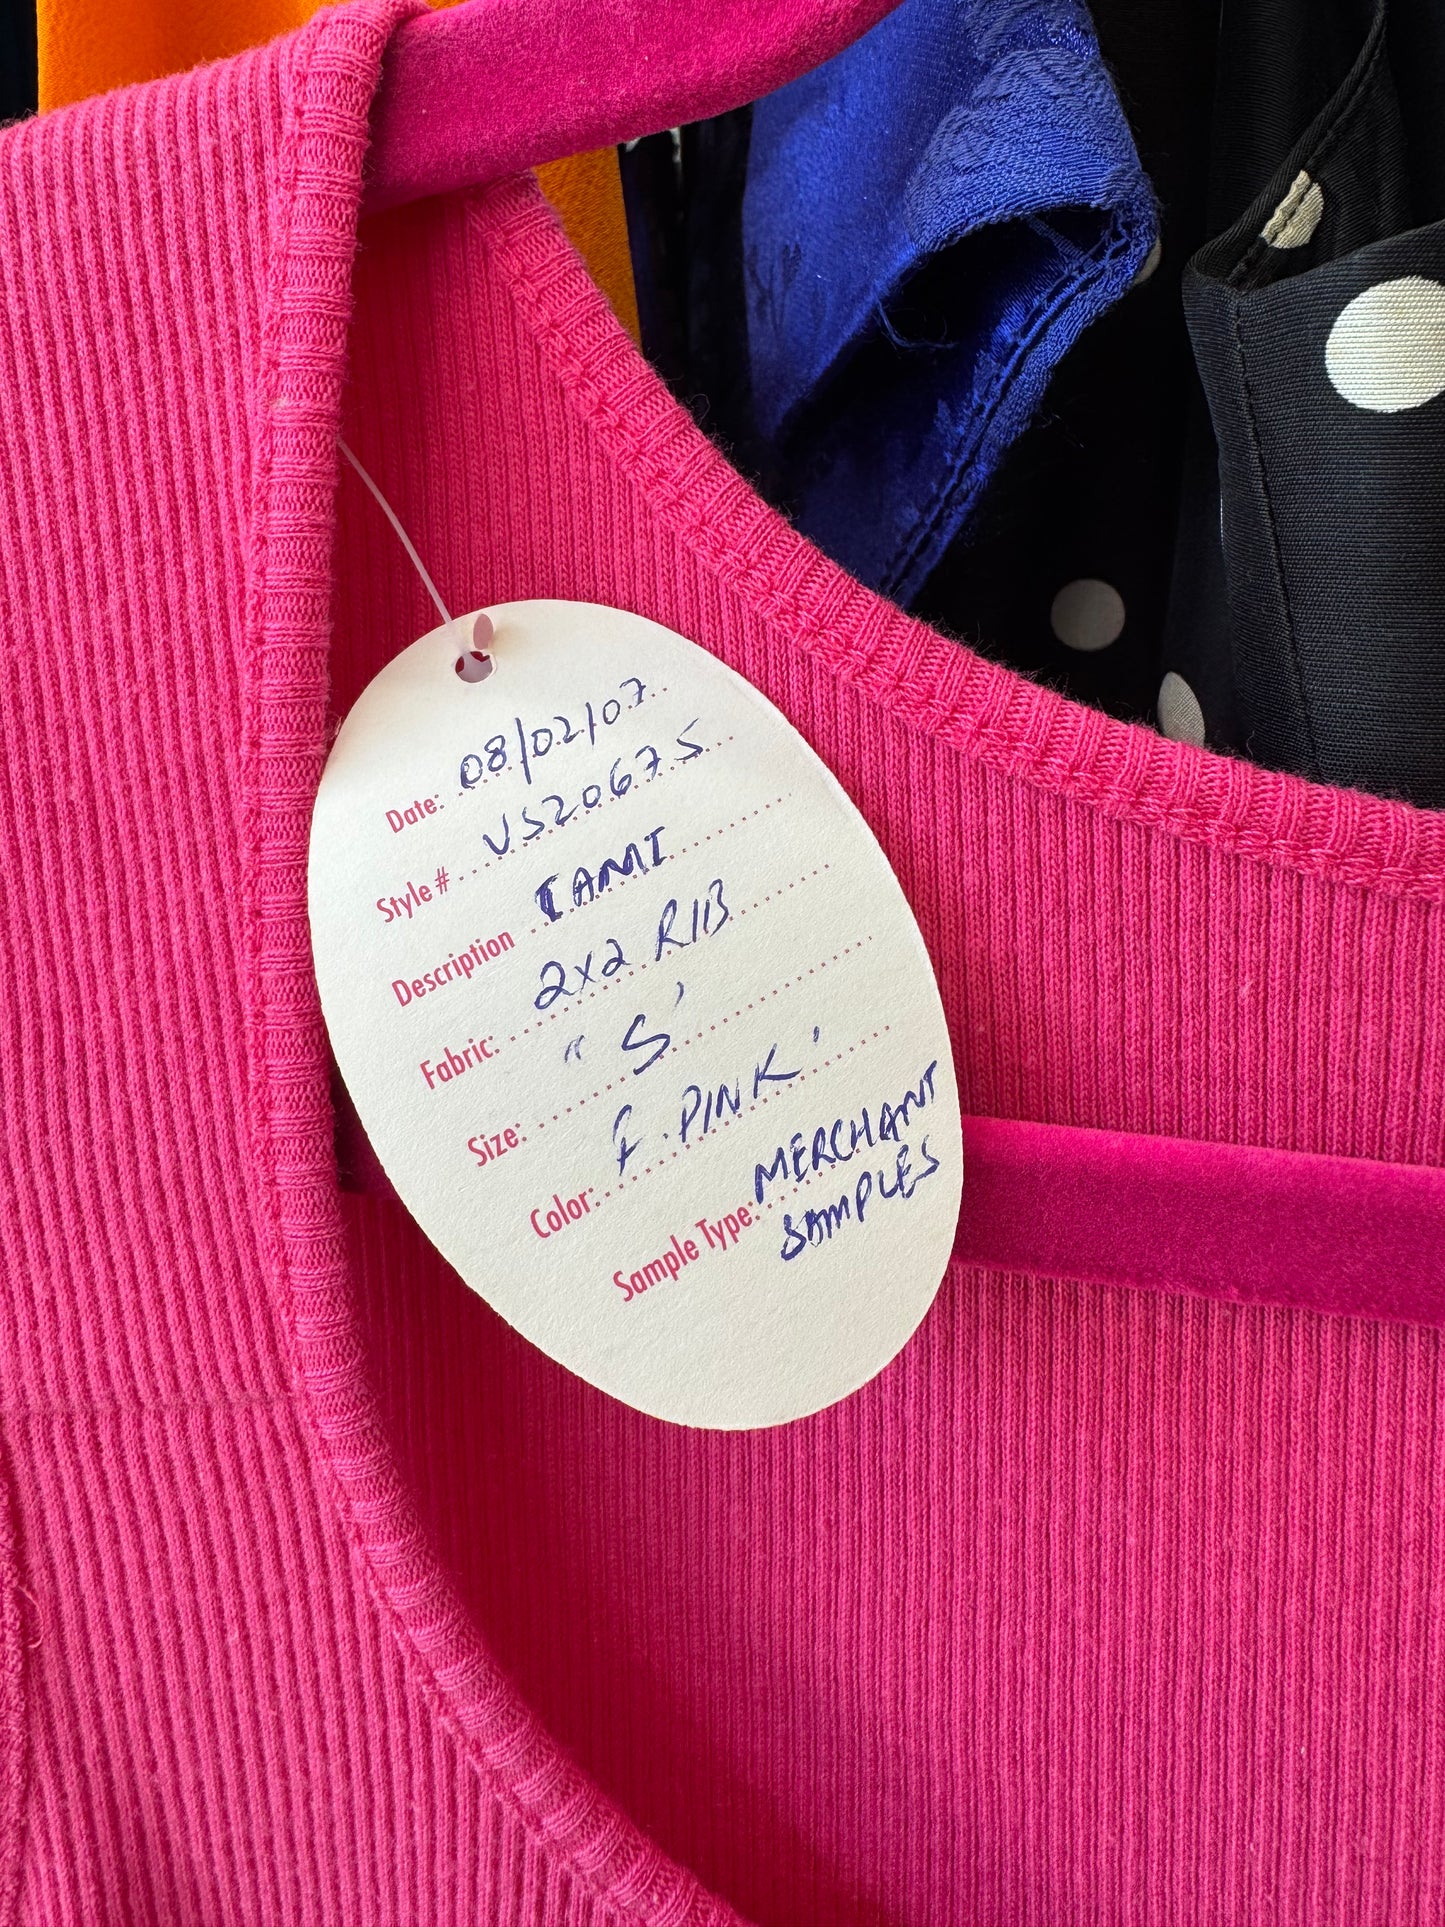 Date: 08/02/07
Style # VS20675
Description TAMI
Fabric: 2x2 RIB
Size: "S"
Color: F. PINK'
Sample Type: MERCHANT
SAMPLES